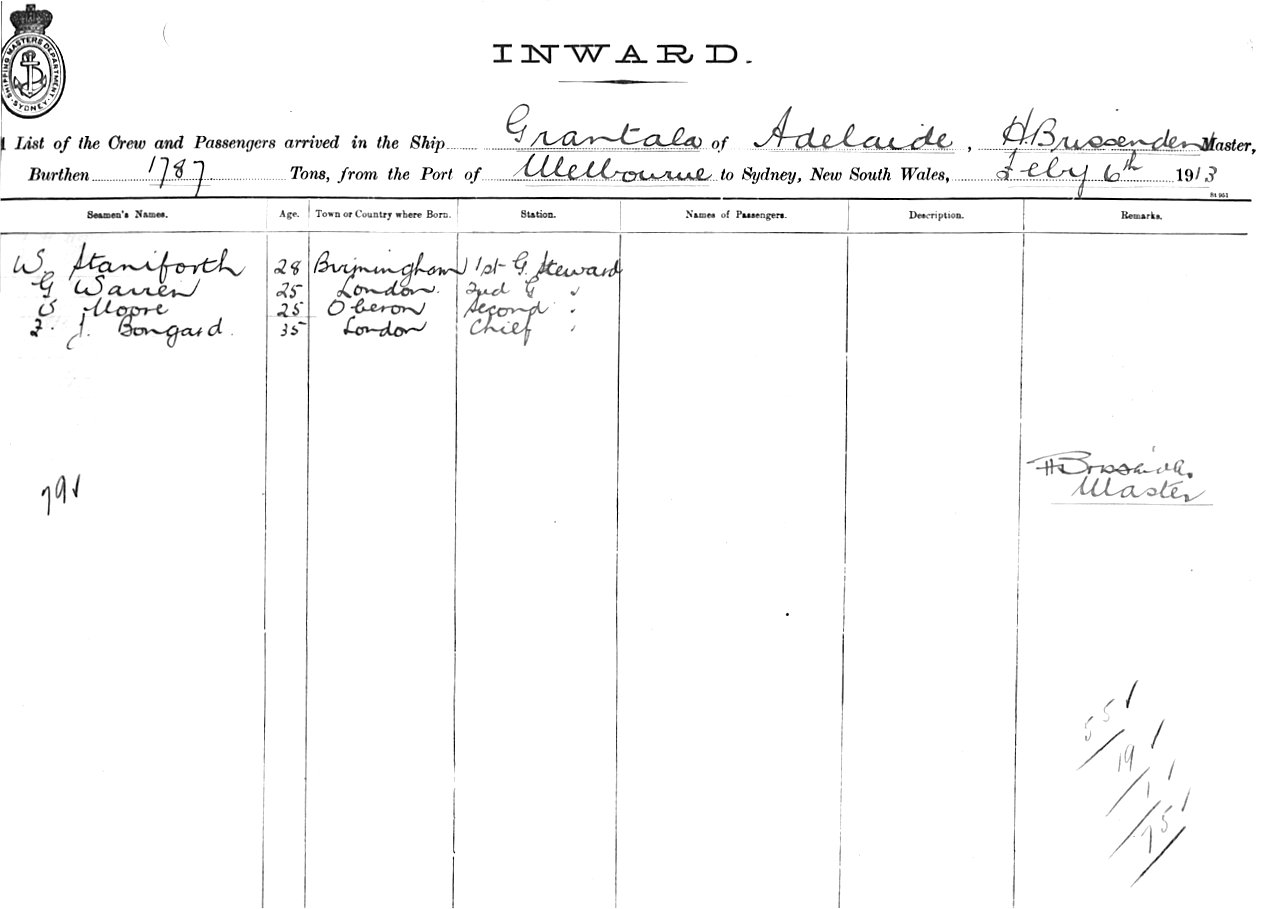 SHIPPING MASTERS DEPARTMENT
SYDNEY
INWARD.
List of the Crew and Passengers arrived in the Ship Grantala of Adelaide, H. Brissenden Master,
Burthen 1787 Tons, from the Port of Melbourne to Sydney, New South Wales, Feby 6th 1913
Seamen's Names. Age. Town or Country where Born. Station. Names of Passengers. Description. Remarks.
W Staniforth 28 Birmingham 1st G. Steward
G Warren 25 London 2nd G "
Moore 25 Oberon Second "
F. J. Bongard. 35 London Chief "
H Brissenden
Master
79
55
19
1
75